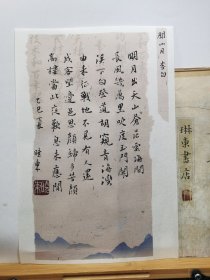 關山月 李白
明月出天山蒼茫雲海間
長風幾萬里吹度玉門關
漢下白登道胡窺青海灣
由來征戰地不見有人還
戍客望邊邑思歸多苦顏
高樓當此夜歎息未應閒
乙巳夏
東書店